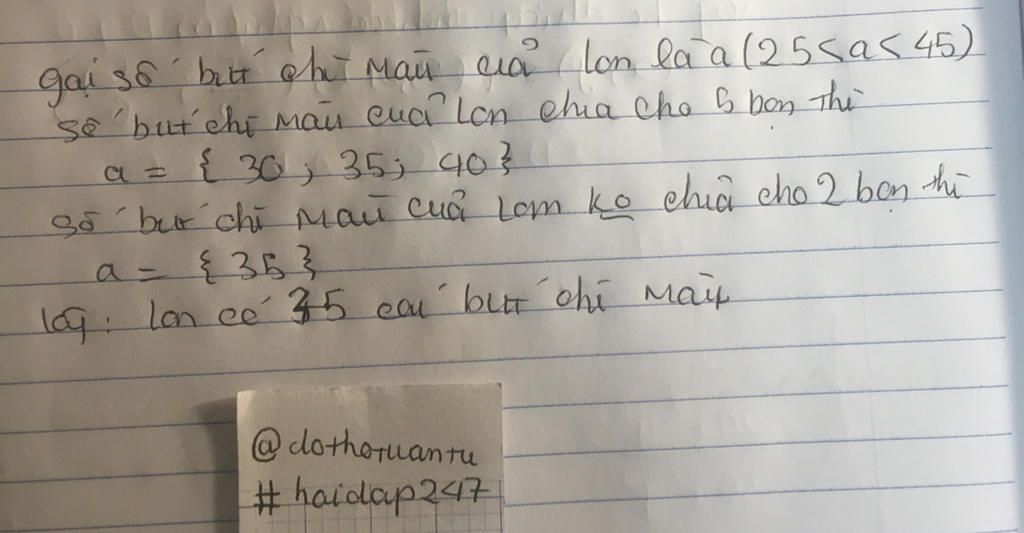 gọi số bút chì màu của lan là a (25 < a < 45)
số bút chì màu của lan chia cho 5 bạn thì
a = { 30 ; 35 ; 40 }
số bút chì màu của Lan ko chia cho 2 bạn thì
a = { 35 }
lan có 35 cái bút chì màu
@dothotuantu
# haidap247